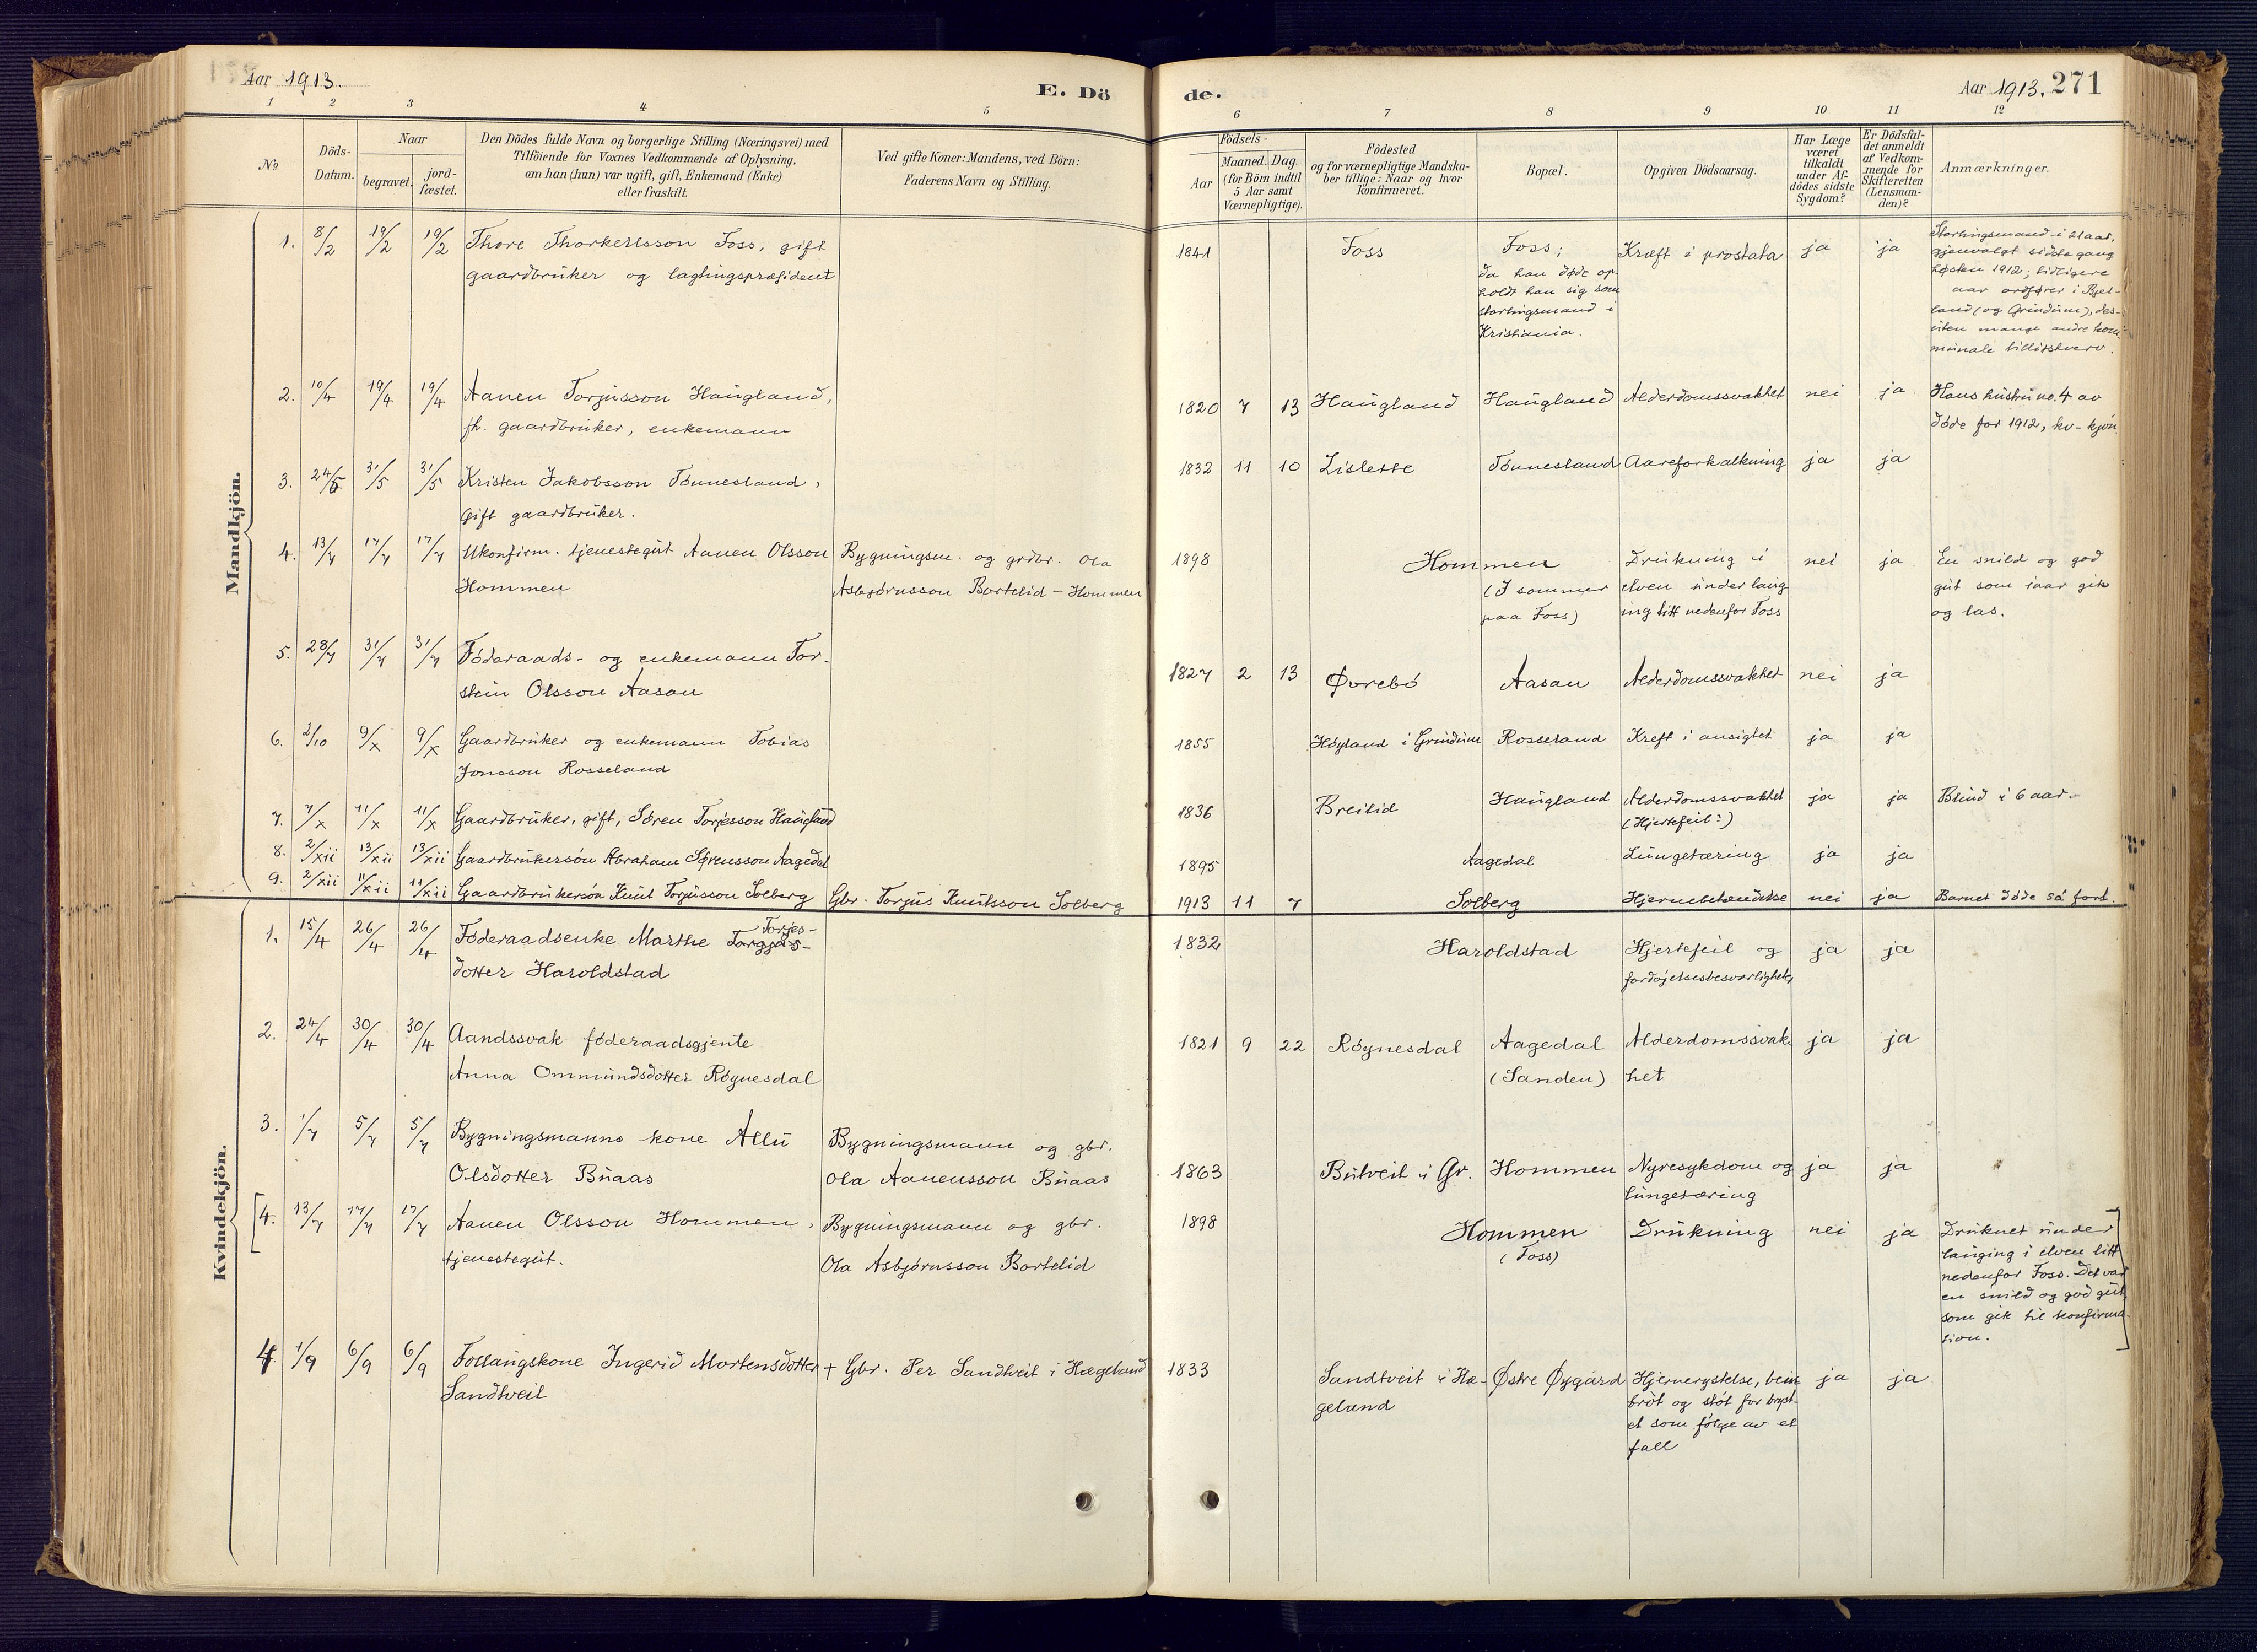 Aar 1913.
E. Dö
de.
Aar 1913. 271
1 2 3 4 5 6 7 8 9 10 11 12
No
Döds-Datum.
Naar
begravet.
jord-fæstet.
Den Dödes fulde Navn og borgerlige Stilling (Næringsvei) med
Tilföiende for Voxnes Vedkommende af Oplysning,
om han (hun) var ugift, gift, Enkemand (Enke)
eller fraskilt.
Ved gifte Koner: Mandens, ved Börn:
Faderens Navn og Stilling.
Födsels-
Aar
Maaned. Dag.
(for Börn indtil
5 Aar samt
Værnepligtige).
Födested
og for værnepligtige Mandska-
ber tillige: Naar og hvor
konfirmeret.
Bopæl.
Opgiven Dödsaarsag.
Har Læge
været
tilkaldt
under Af-
dödes sidste
Sygdom?
Er Dödsfal-
det anmeldt
af Vedkom-
mende for
Skifteretten
(Lensman-
den)?
Anmærkninger.
Mandkjön.
1. 8/2 19/2 19/2 Thore Thorkelsson Foss, gift
gaardbruker og lagtingspræsident
1841 Foss Foss;
da han døde op-
holdt han sig som
stortingsmand i
Kristiania.
Kræft i prostata ja ja
Stortingsmand i 21 aar,
gjenvalgt sidste gang
høsten 1912; tidligere
aar ordfører i Bjel-
land (og Grindum), des-
uten mange andre kom-
munale tillitshverv.
2. 10/4 19/4 19/4 Aanen Torjusson Haugland,
fh. gaardbruker, enkemann
1820 7 13 Haugland Haugland Alderdomssvakhet nei ja Hans hustru no. 4 av
døde for 1912, kv-kjøn.
3. 24/5 31/5 31/5 Kristen Jakobsson Tønnesland,
gift gaardbruker.
1832 11 10 Lislette Tønnesland Aareforkalkning ja ja
4. 13/7 17/7 17/7 Ukonfirm. tjenestegut Aanen Olsson
Hommen
Bygningsm. og grdbr. Ola
Asbjørnsson Bortelid - Hommen
1898 Hommen
(I sommer
paa Foss)
Drukning i
elven under laug
ing litt nedenfor Foss
nei ja En snild og god
gut som iaar gik
og las.
5. 28/7 31/7 31/7 Føderaads- og enkemann Tor-
stein Olsson Aasan
1827 2 13 Øvrebø Aasan Alderdomssvakhet nei ja
6. 2/10 9/X 9/X Gaardbruker og enkemann Tobias
Jonsson Rosseland
1855 Høyland i Grindum Rosseland Kreft i ansigtet ja ja
7. 7/X 11/X 11/X Gaardbruker, gift, Søren Torjesson Haugland
1836 Breilid Haugland Alderdomssvakhet
(Hjertefeil?)
ja ja Blind i 6 aar.
8. 2/XII 13/XII 13/XII Gaardbrukersøn Abraham Sørensson Aagedal
1895 Aagedal Lungetæring ja ja
9. 2/XII 11/XII 11/XII Gaardbrukersøn Knut Torjusson Solberg Gbr. Torjus Knutsson Solberg
1913 11 7 Solberg Hjernebetændelse nei ja Barnet døde så fort.
Kvindekjön.
1. 15/4 26/4 26/4 Føderaadsenke Marthe Torjes-
dotter Haroldstad
1832 Haroldstad Hjertefeil og
fordøjelsesbesværligheter
ja ja
2. 24/4 30/4 30/4 Aandssvak føderaadsgjente
Anna Ommundsdotter Røynesdal
1821 9 22 Røynesdal Aagedal
(Sanden)
Alderdomssvak-
het
ja ja
3. 1/7 5/7 5/7 Bygningsmanns kone Allu
Olsdotter Buaas
Bygningsmann og gbr.
Ola Aanensson Buaas
1863 Butveit i Gr. Hommen Nyresykdom og
lungetæring
ja ja
[4. 13/7 17/7 17/7 Aanen Olsson Hommen,
tjenestegut.
Bygningsmann og gbr.
Ola Asbjørnsson Bortelid
1898 Hommen
(Foss)
Drukning nei ja Druknet under
lauging i elven litt
nedenfor Foss. Det var
en snild og god gut,
som gik til konfirma-
sion.]
4. 1/9 6/9 6/9 Follaugskone Ingerid Mortensdotter
Sandtveit
+ Gbr. Per Sandtveit i Hægeland
1833 Sandtveit i Hæ-
geland
Østre Øygard Hjernerystelse, bein
brot og støt for bryst-
et som følge av et
fall
ja ja